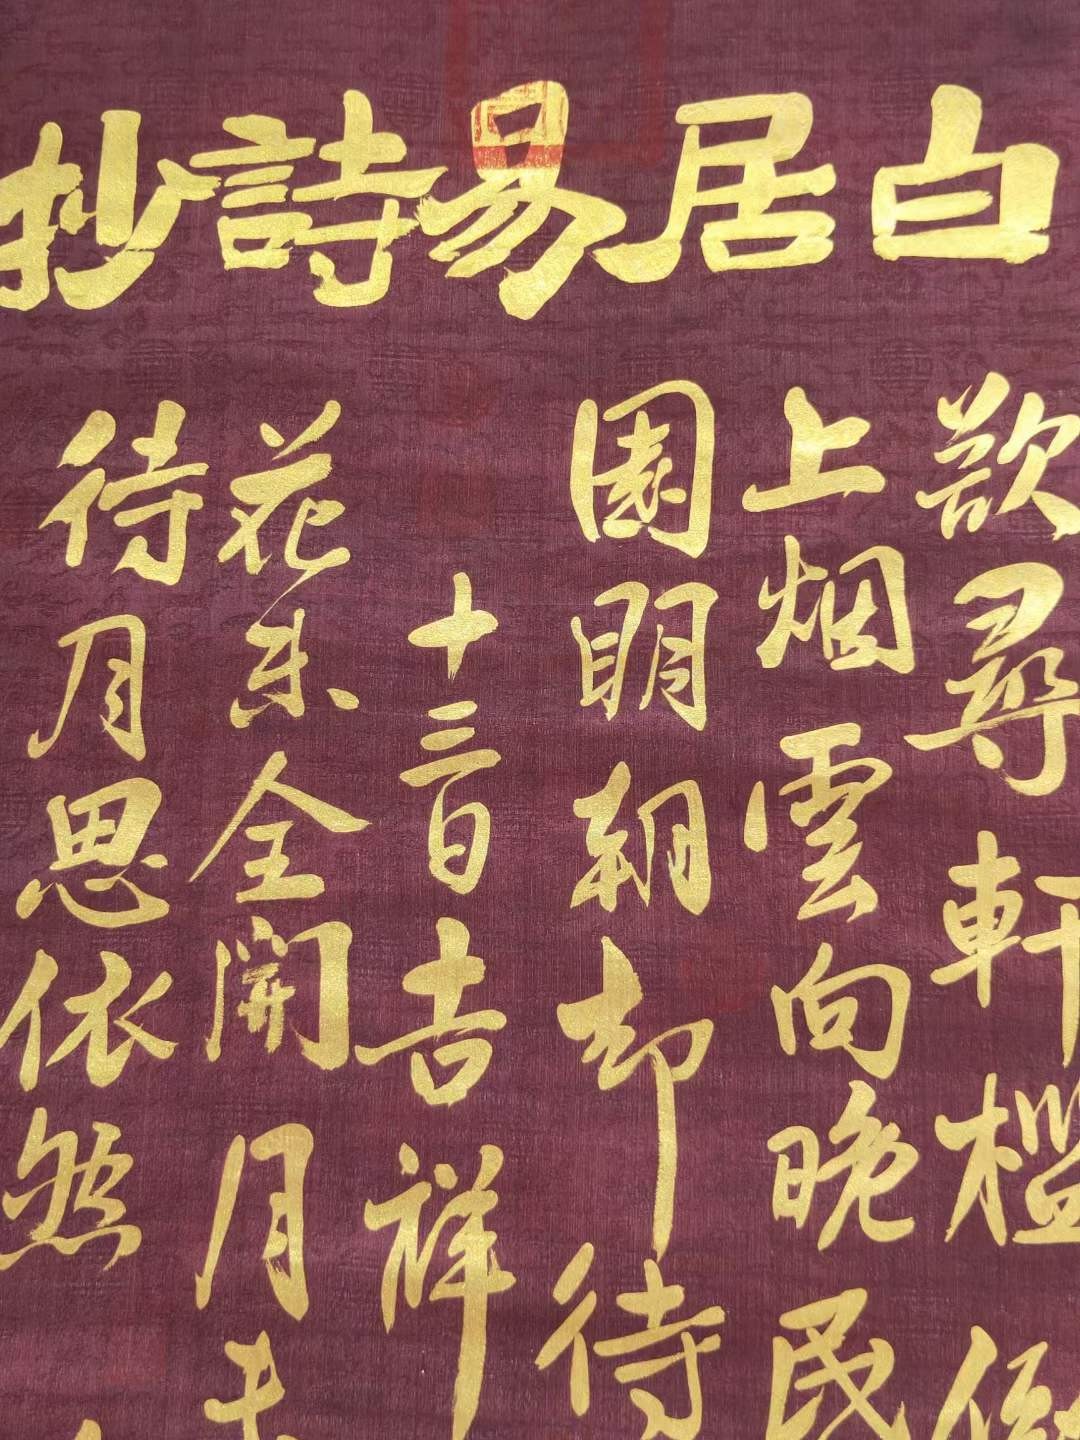 白居易詩抄
欲尋軒檻
上烟雲向晚
園明朝却待
十三日吉祥
花未全開月未
待月思依然